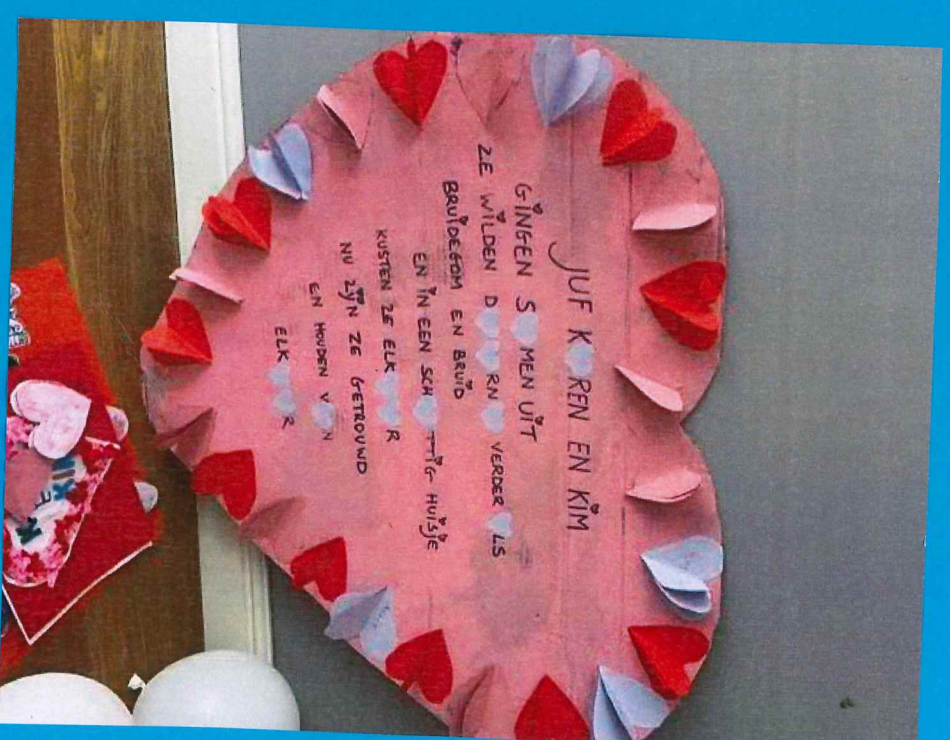 JUF K♥REN EN KIM
GINGEN S♥MEN UIT
ZE WILDEN D♥♥RN♥ VERDER ♥LS
BRUIDEGOM EN BRUID
EN IN EEN SCH♥TTIG HUISJE
KUSTEN ZE ELK♥♥R
NU ZIJN ZE GETROUWD
EN HOUDEN V♥N
ELK♥♥R